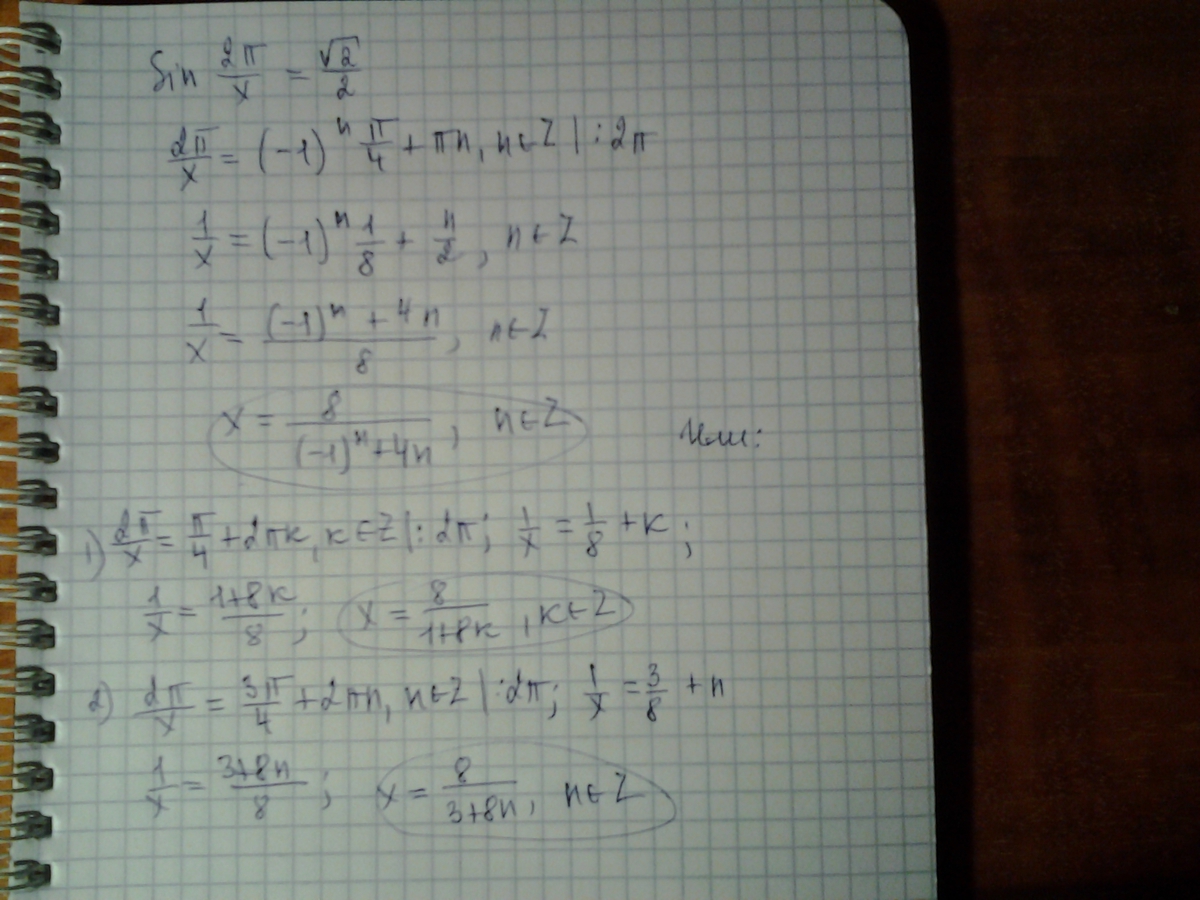 Sin 2π/x = √2/2
2π/x = (-1)^n π/4 + πn, n∈Z |:2π
1/x = (-1)^n 1/8 + n/2, n∈Z
1/x = ((-1)^n + 4n)/8, n∈Z
x = 8/((-1)^n+4n), n∈Z Или:
1) 2π/x = π/4 + 2πk, k∈Z |:2π; 1/x = 1/8 + k;
1/x = (1+8k)/8; x = 8/(1+8k), k∈Z
2) 2π/x = 3π/4 + 2πn, n∈Z |:2π; 1/x = 3/8 + n
1/x = (3+8n)/8; x = 8/(3+8n), n∈Z